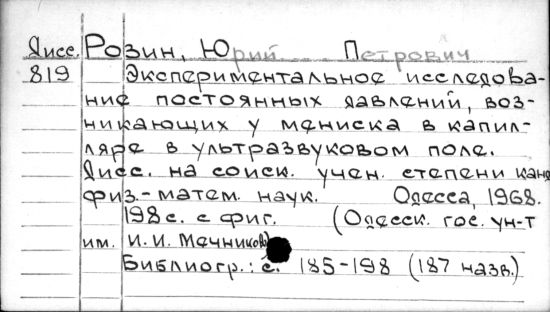 Дисс. Розин, Юрий Петрович
819 Экспериментальное исследова-
ние постоянных давлений, воз-
никающих у мениска в капил-
ляре в ультразвуковом поле.
Дисс. на соиск. учен. степени канд
физ.-матем. наук. Одесса, 1968.
198 с. с фиг. (Одесск. гос. ун-т
им. И. И. Мечникова)
Библиогр.: с. 185-198 (187 назв.)